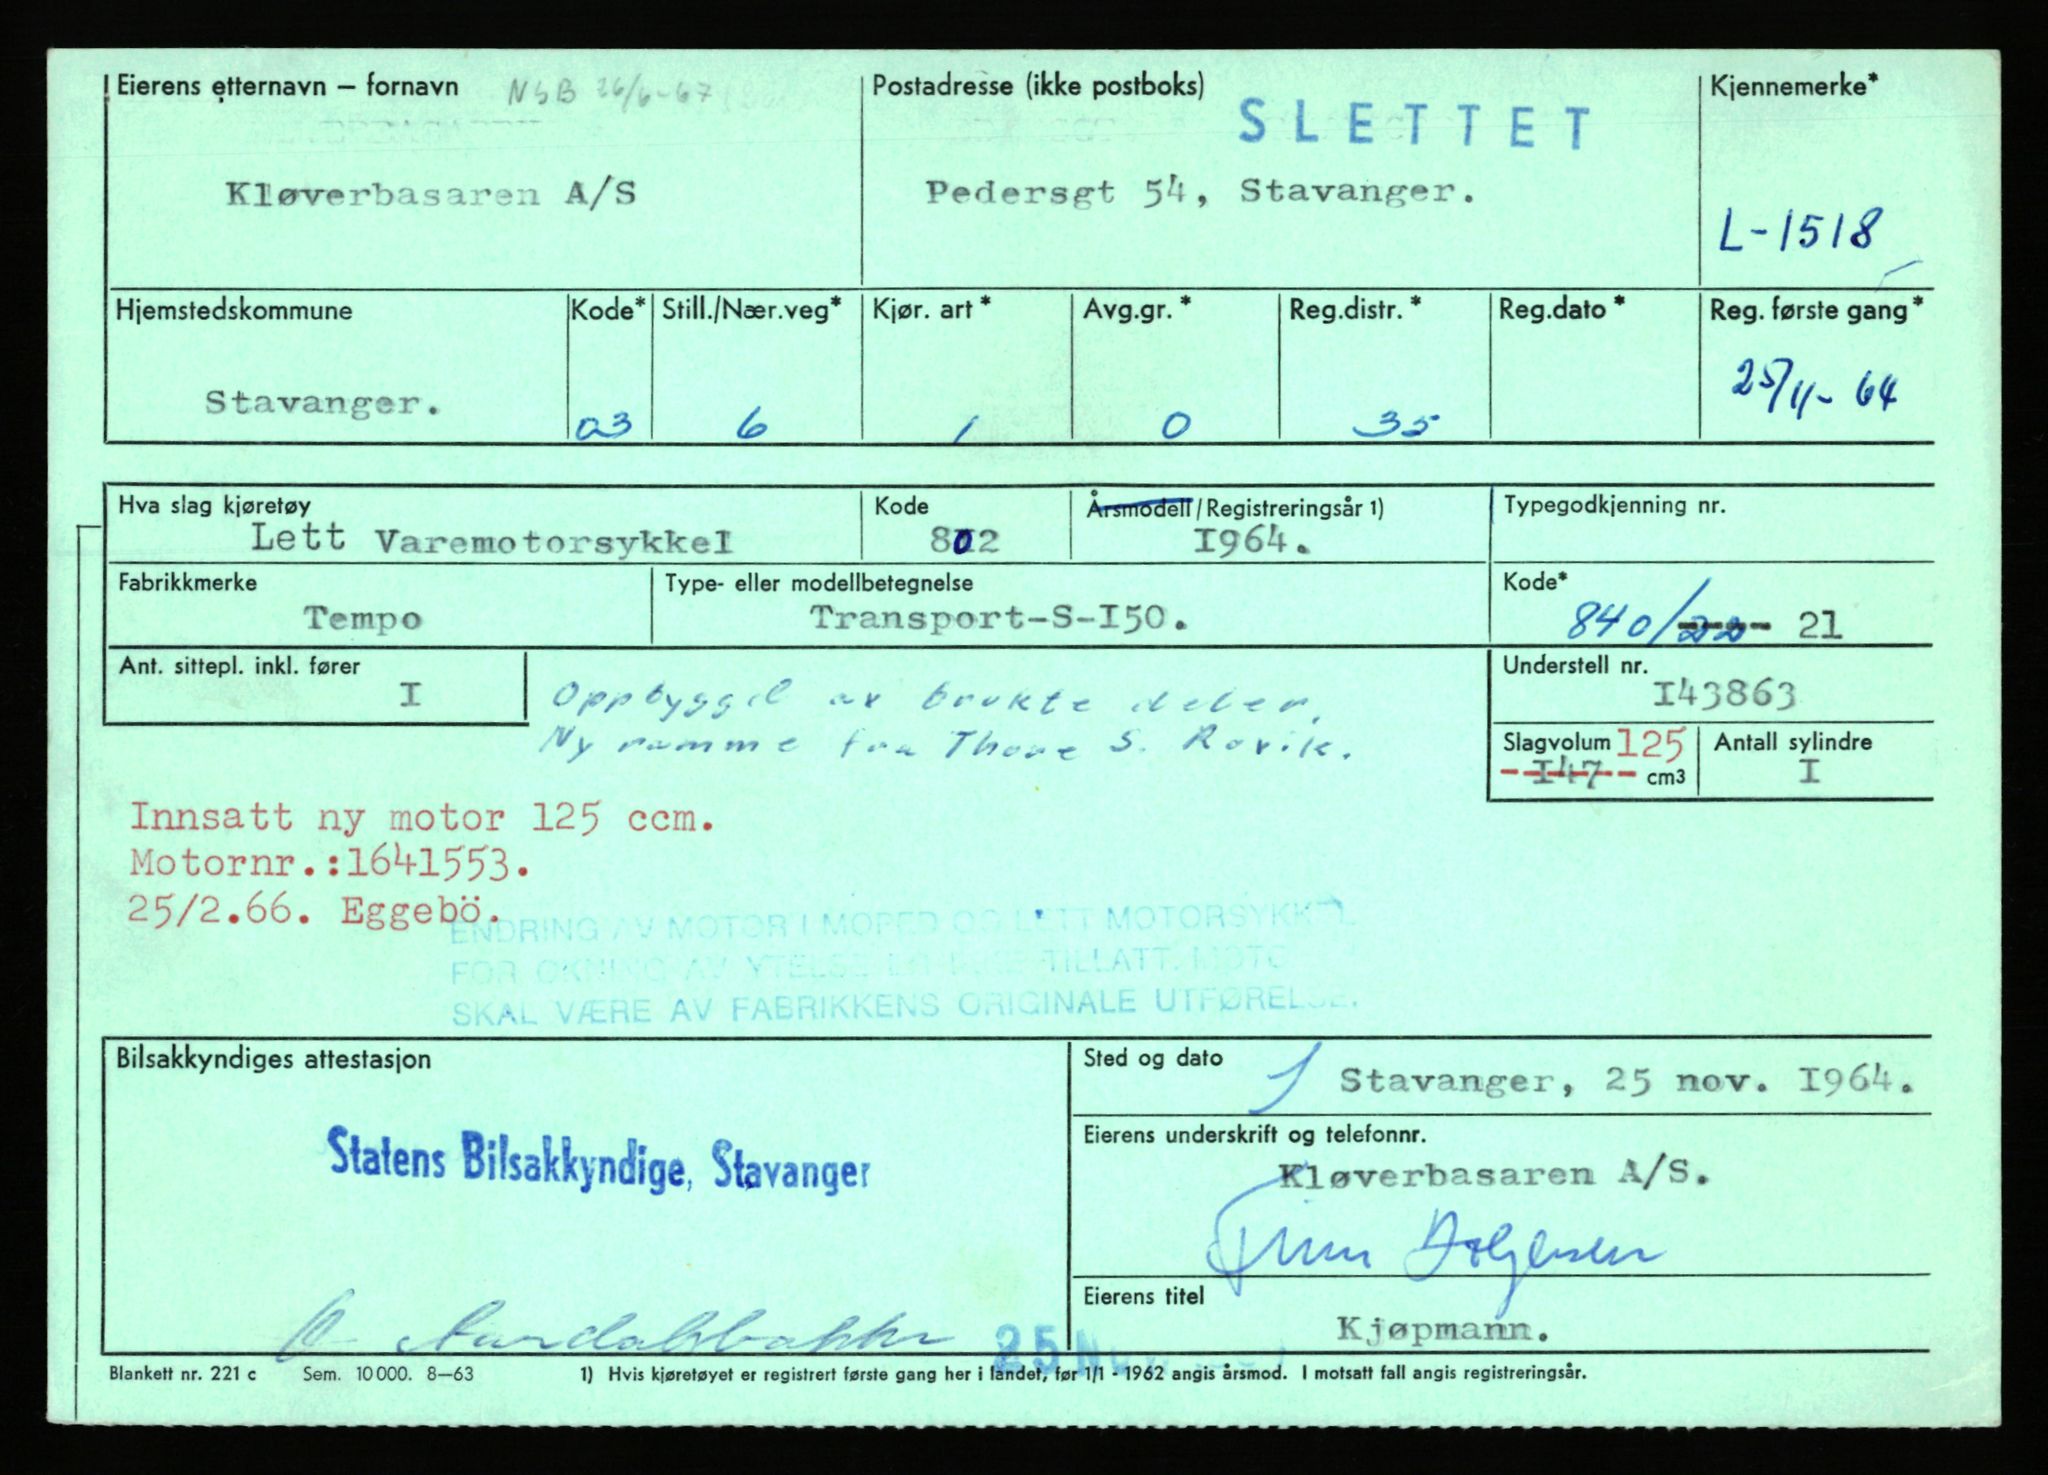 Eierens etternavn – fornavn NSB 26/6-67
Postadresse (ikke postboks)
Kjennemerke*
SLETTET
Kløverbasaren A/S
Pedersgt 54, Stavanger.
L-1518
Hjemstedskommune
Kode*
Still./Nær.veg*
Kjør. art *
Avg.gr. *
Reg.distr. *
Reg.dato *
Reg. første gang*
Stavanger.
03
6
1
0
35
25/11-64
Hva slag kjøretøy
Lett Varemotorsykkel
Kode
802
Årsmodell/Registreringsår 1)
1964.
Typegodkjenning nr.
Fabrikkmerke
Tempo
Type- eller modellbetegnelse
Transport-S-I50.
Kode*
840/22 21
Ant. sittepl. inkl. fører
I
Oppbygget av brukte deler.
Ny ramme fra Thore S. Rovik.
Understell nr.
I43863
Slagvolum 125
I47 cm3
Antall sylindre
I
Innsatt ny motor 125 ccm.
Motornr.:1641553.
25/2.66. Eggebö.
ENDRING AV MOTOR I MOPED OG LETT MOTORSYKKEL
FOR ØKNING AV YTELSE ER IKKE TILLATT. MOTO
SKAL VÆRE AV FABRIKKENS ORIGINALE UTFØRELSE.
Bilsakkyndiges attestasjon
Statens Bilsakkyndige, Stavanger
Sted og dato
Stavanger, 25 nov. I964.
Eierens underskrift og telefonnr.
Kløverbasaren A/S.
Eierens titel
Kjøpmann.
25 N
Blankett nr. 221 c Sem. 10000. 8–63
1) Hvis kjøretøyet er registrert første gang her i landet, før 1/1 - 1962 angis årsmod. I motsatt fall angis registreringsår.